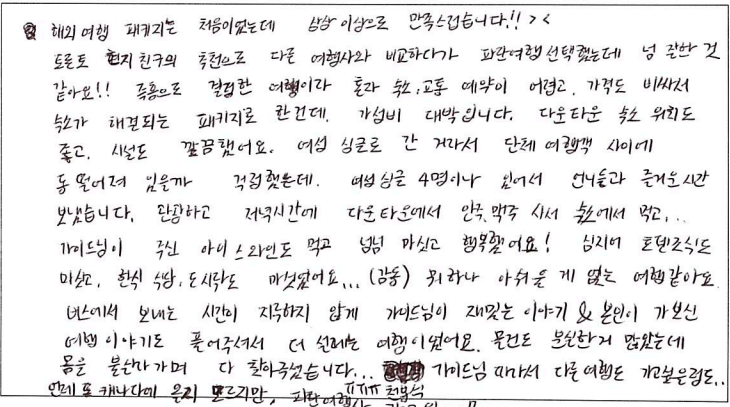 해외여행 패키지는 처음이었는데 상상 이상으로 만족스럽습니다!! > <
토론토 현지 친구의 추천으로 다른 여행사와 비교하다가 파란여행 선택했는데 넘 잘한 것
같아요!! 즉흥으로 결정한 여행이라 혼자 숙소, 교통 예약이 어렵고, 가격도 비싸서
숙소가 해결되는 패키지로 한건데. 가성비 대박입니다. 다운타운 숙소 위치도
좋고. 시설도 깔끔했어요. 여성 싱글로 간 거라서 단체 여행객 사이에
동 떨어져 있을까 걱정했는데. 여성 싱글 4명이나 있어서 언니들과 즐거운 시간
보냈습니다. 관광하고 저녁시간에 다운타운에서 안주, 맥주 사서 숙소에서 먹고...
가이드님이 주신 아이스와인도 먹고 넘넘 맛있고 행복했어요! 심지어 호텔조식도
맛있고, 한식 식당, 도시락도 맛있었어요... (감동) 뭐 하나 아쉬울 게 없는 여행같아요.
버스에서 보내는 시간이 지루하지 않게 가이드님이 재밌는 이야기 & 본인이 가보신
여행 이야기도 풀어주셔서 더 설레는 여행이었어요. 물건도 분실한게 많았는데
몸을 불살라가며 다 찾아주셨습니다... 가이드님 따라서 다른여행도 가고싶은정도..
언제 또 캐나다에 올지 모르지만, 파란여행